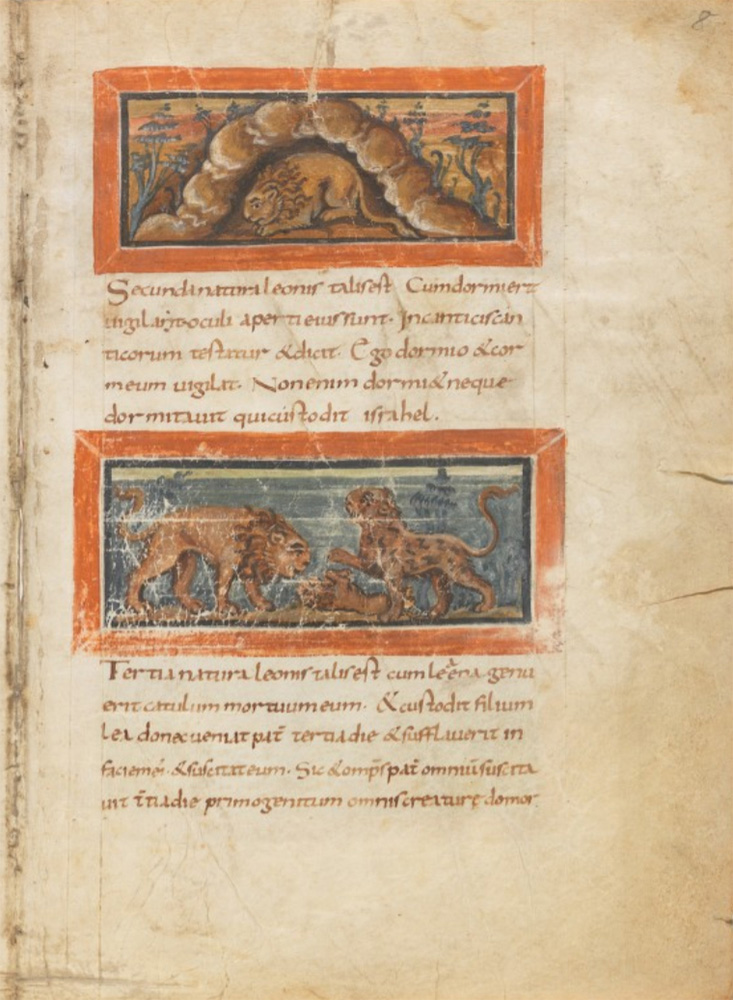 8
Secunda natura leonis talis est Cum dormierit
uigilant oculi aperti eius sunt. In canticis can
ticorum testatur & dicit. Ego dormio & cor
meum uigilat. Non enim dormi& neque
dormitauit qui custodit israhel.
Tertia natura leonis talis est cum leęna genu
erit catulum mortuum eum. & custodit filium
lea donec ueniat pat̄ tertia die & sufflauerit in
faciem ei & suscitat eum. Sic & omp̄s pat̄ omniū suscita
uit t̄tia die primogenitum omnis creaturę domor